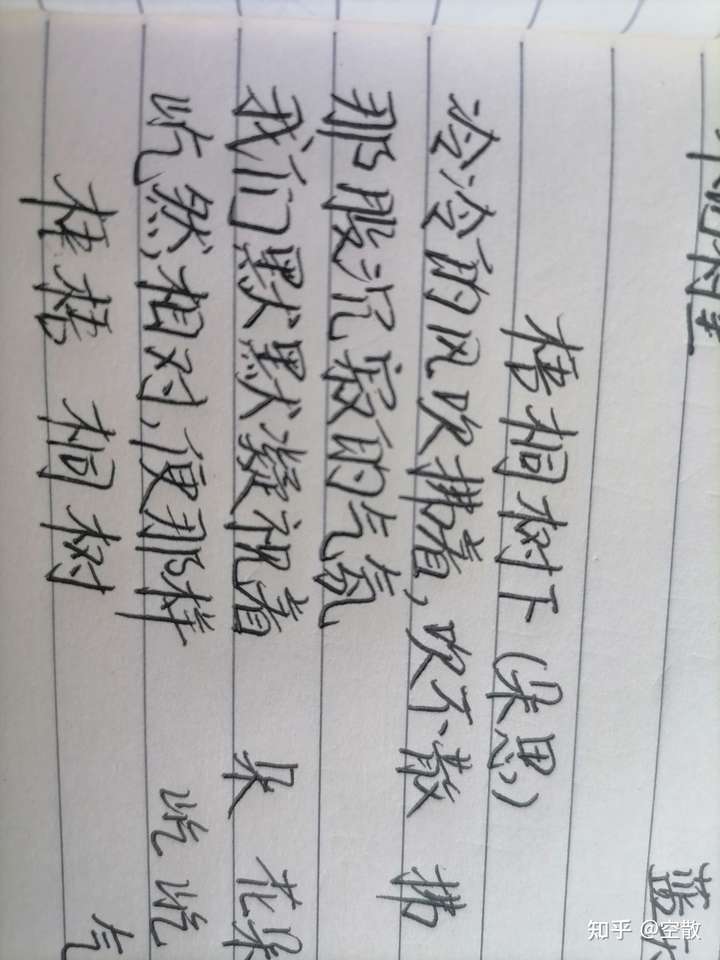 蓝
梧桐树下(朵思)
冷冷的风吹拂着,吹不散 拂
那股沉寂的气氛
我们默默凝视着 朵 花朵
屹然相对,便那样 屹屹
桂梧 桐树 气
知乎 @空散